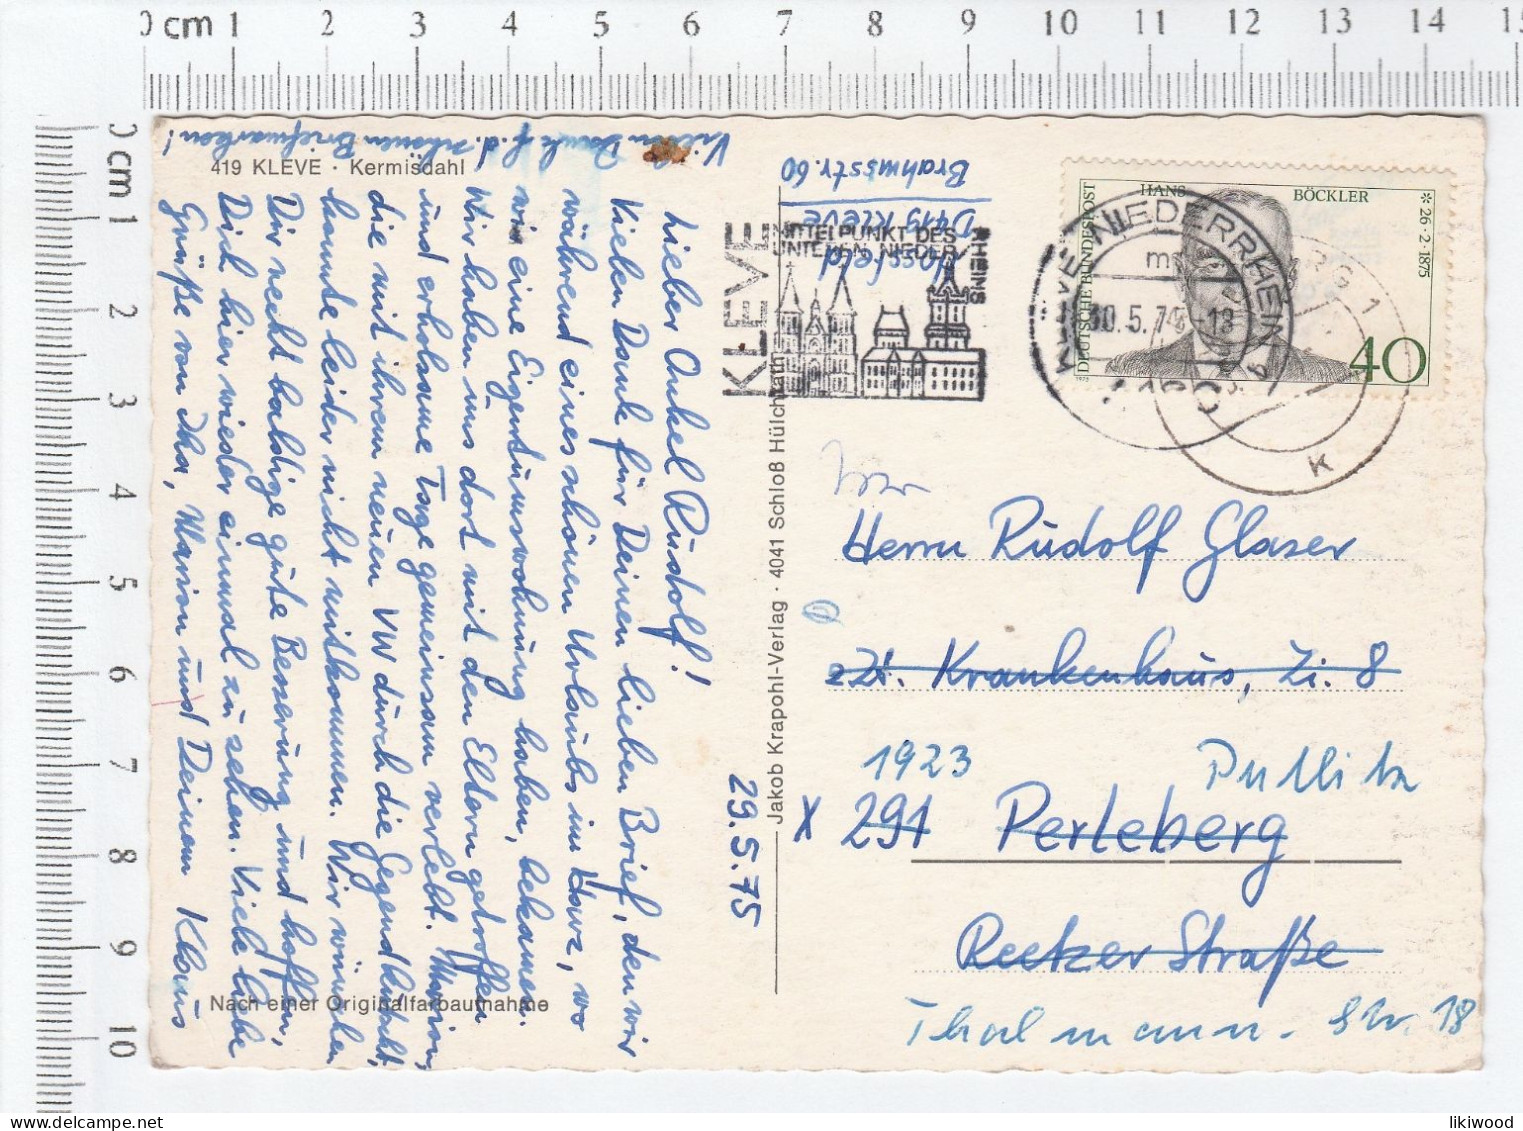 0 cm 1 2 3 4 5 6 7 8 9 10 11 12 13 14 15
0 cm 1 2 3 4 5 6 7 8 9 10
Vielen Dank f. d. schönen Briefmarken!
419 KLEVE · Kermisdahl
29.5.75
Lieber Onkel Rudolf!
Vielen Dank für Deinen lieben Brief, den wir
während eines schönen Urlaubs im Harz, wo
wir eine Eigentumswohnung haben, bekamen.
Wir haben uns dort mit den Eltern getroffen
und erholsame Tage gemeinsam verlebt. Marion,
die mit ihrem neuen VW durch die Gegend kutscht,
konnte leider nicht mitkommen. Wir wünschen
Dir recht baldige gute Besserung und hoffen,
Dich hier wieder einmal zu sehen. Viele liebe
Grüße von Ika, Marion und Deinem Klaus
Nach einer Originalfarbaufnahme
Jakob Krapohl-Verlag · 4041 Schloß Hülchrath
Hossfeld
D419 Kleve
Brahmsstr. 60
KLEVE
MITTELPUNKT DES
UNTEREN NIEDER-
RHEINS
KLEVE NIEDERRHEIN
30.5.75-18
m
RG 1
K
DEUTSCHE BUNDESPOST
HANS BÖCKLER
* 26·2·1875
40
Herrn Rudolf Glaser
zZt. Krankenhaus, Zi. 8
1923 Putlitz
X 291 Perleberg
Reetzer Straße
Thalmann-Str. 18
likiwood